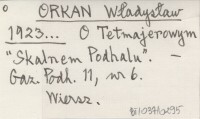 ORKAN Władysław
1923... O Tetmajerowym
"Skalnem Podhalu". -
Gaz. Podh. 11, nr 6.
Wiersz.